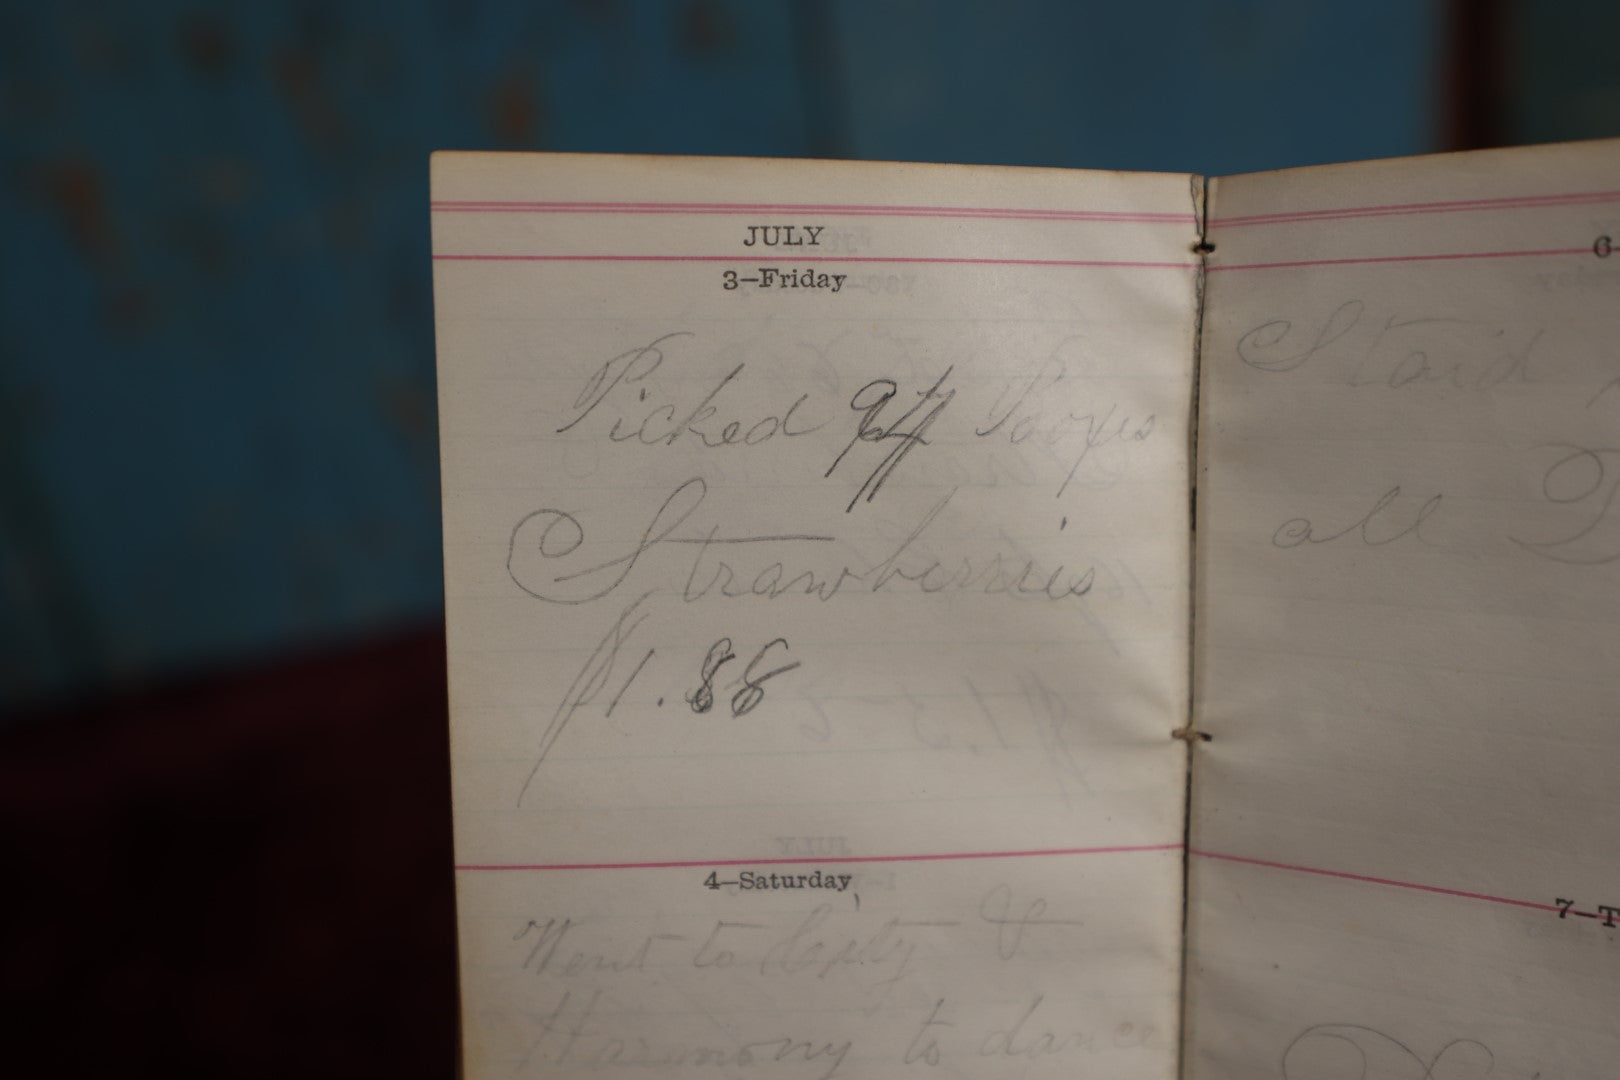 JULY
3—Friday
Picked 94 Boxes
Strawberries
$1.88
4—Saturday
Went to City &
Harmony to dance
6-
Staid
all D
7—T